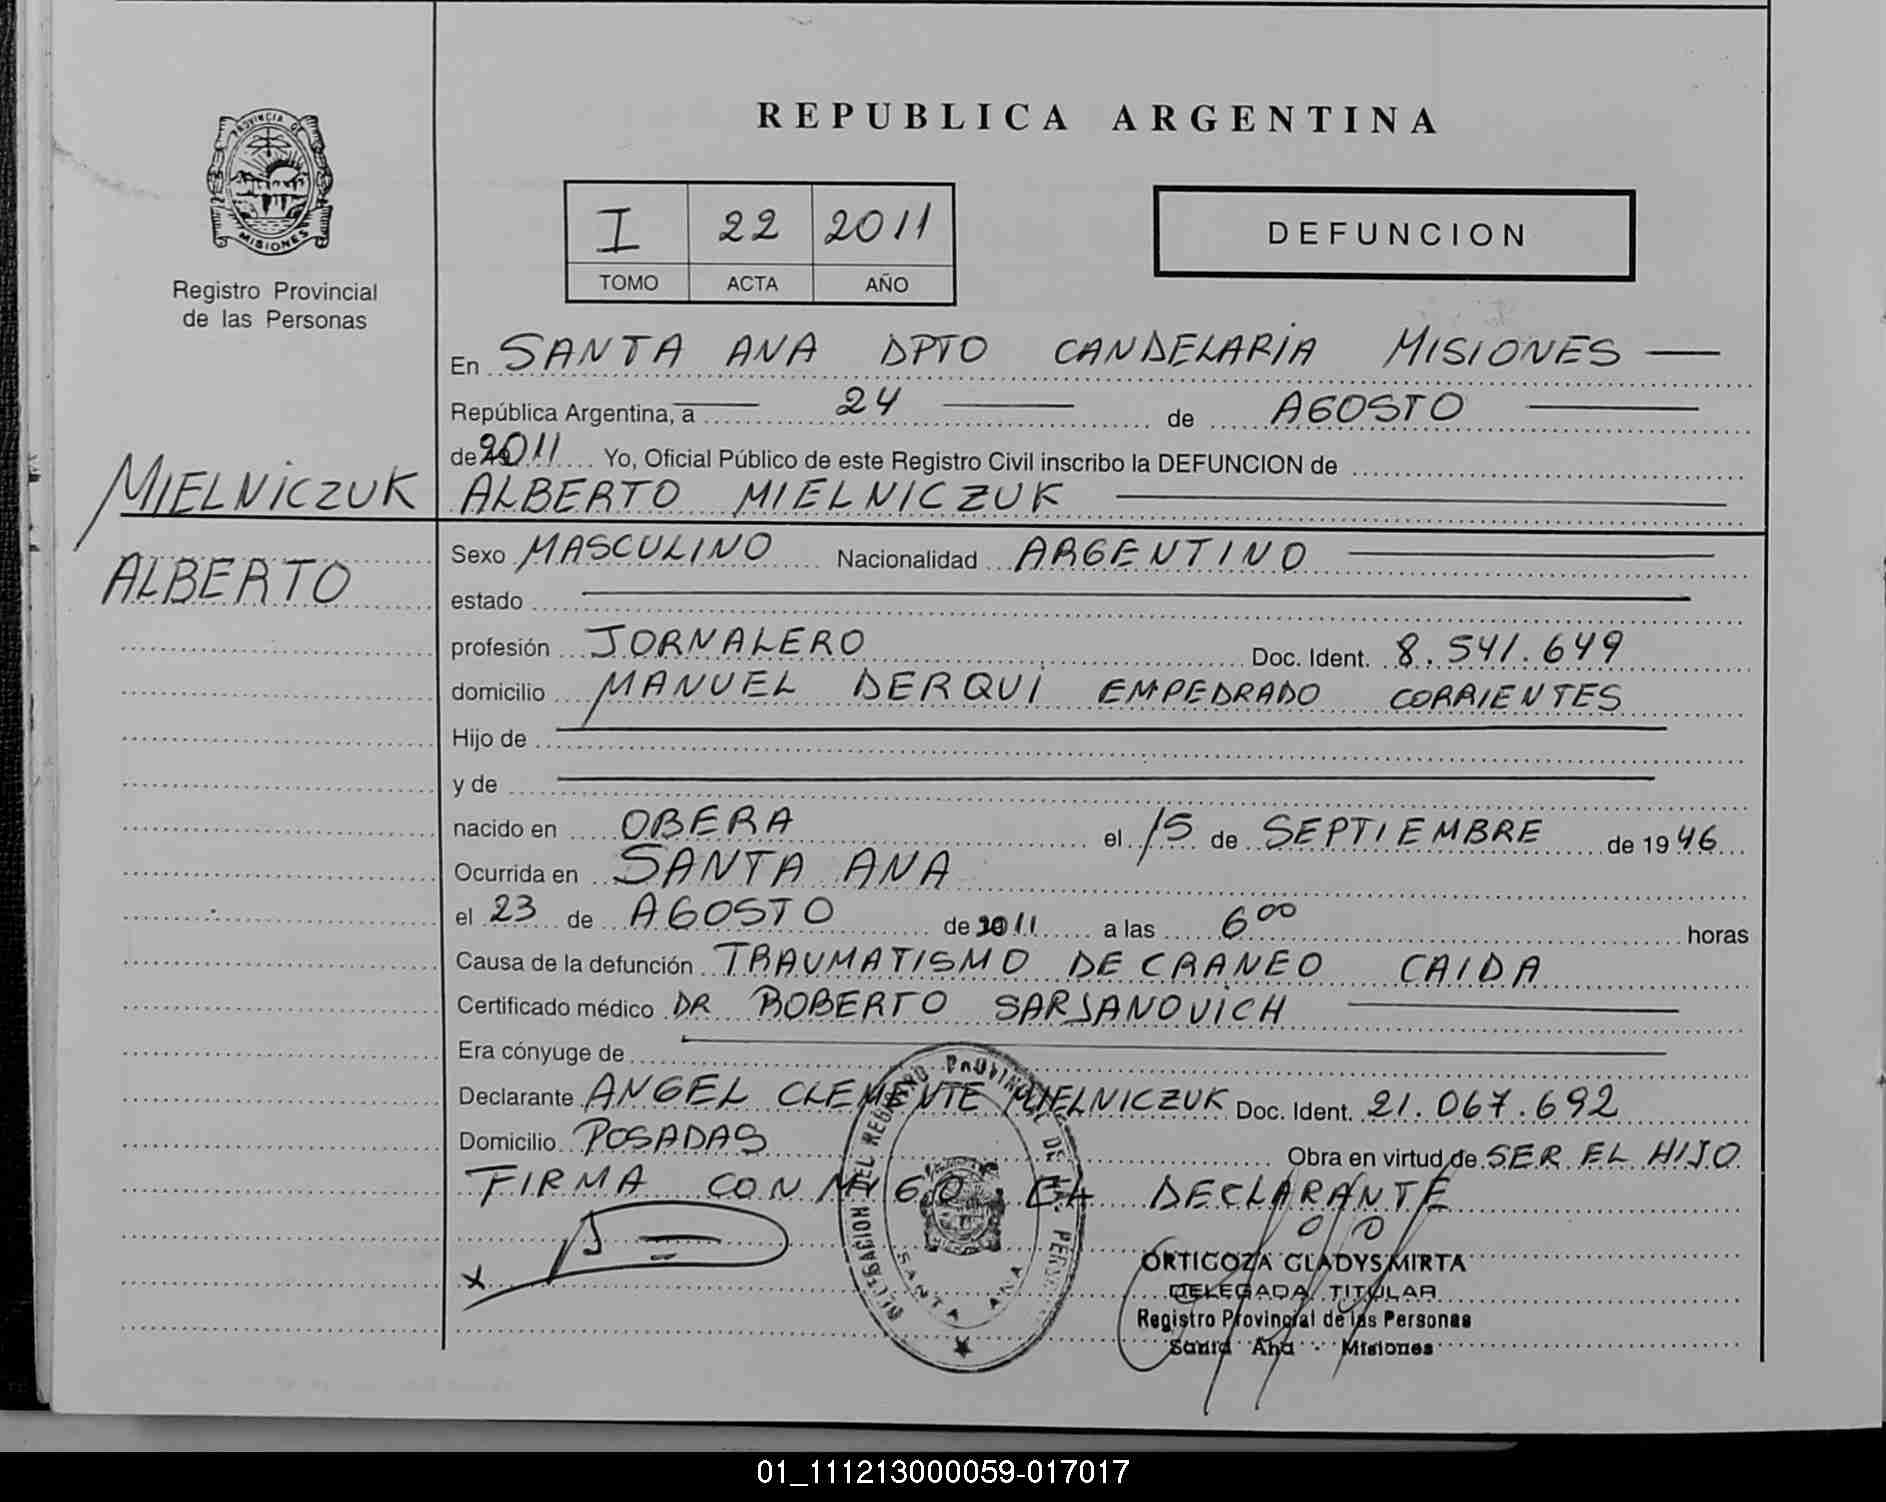 PROVINCIA DE
MISIONES
Registro Provincial
de las Personas
REPUBLICA ARGENTINA
I 22 2011
TOMO ACTA AÑO
DEFUNCION
En SANTA ANA DPTO CANDELARIA MISIONES
República Argentina, a 24 de AGOSTO
de 2011 Yo, Oficial Público de este Registro Civil inscribo la DEFUNCION de
MIELNICZUK ALBERTO MIELNICZUK
ALBERTO
Sexo MASCULINO Nacionalidad ARGENTINO
estado
profesión JORNALERO Doc. Ident. 8.541.649
domicilio MANUEL DERQUI EMPEDRADO CORRIENTES
Hijo de
y de
nacido en OBERA el 15 de SEPTIEMBRE de 1946
Ocurrida en SANTA ANA
el 23 de AGOSTO de 2011 a las 6 00 horas
Causa de la defunción TRAUMATISMO DE CRANEO CAIDA
Certificado médico DR ROBERTO SARJANOVICH
Era cónyuge de
Declarante ANGEL CLEMENTE MIELNICZUK Doc. Ident. 21.067.692
Domicilio POSADAS Obra en virtud de SER EL HIJO
FIRMA CONMIGO EL DECLARANTE
X
SANTA ANA
ORTIGOZA GLADYS MIRTA
DELEGADA TITULAR
Registro Provincial de las Personas
Santa Ana - Misiones
01_111213000059-017017